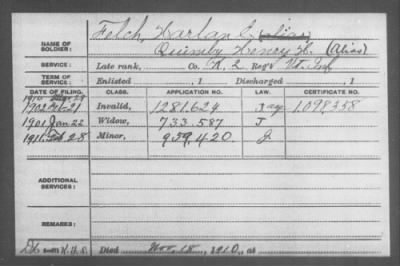 Felch, Harlan L. (alias)
NAME OF SOLDIER: Quimby Henry H. (Alias)
SERVICE: Late rank, Co. K, 2 Reg't Vt. Inf
TERM OF SERVICE: Enlisted , 1 Discharged , 1
DATE OF FILING. CLASS. APPLICATION NO. LAW. CERTIFICATE NO.
1902 Invalid, 1281.624 1.098358
1901 Jan 22 Widow, 733.587 J
1911. Feb 28 Minor, 959.420 J
ADDITIONAL SERVICES:
REMARKS:
Died Nov. 18, 1910, at